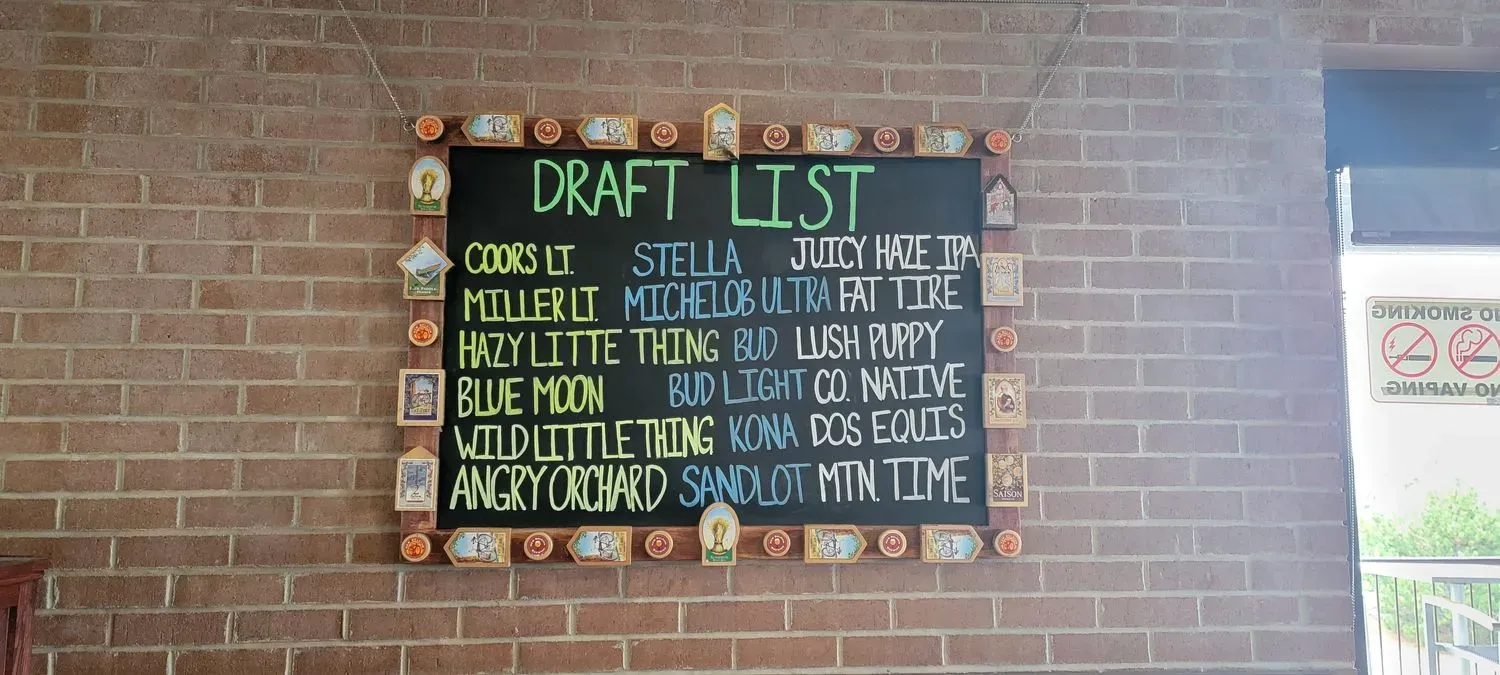 DRAFT LIST
COORS LT. STELLA JUICY HAZE IPA
MILLER LT. MICHELOB ULTRA FAT TIRE
HAZY LITTE THING BUD LUSH PUPPY
BLUE MOON BUD LIGHT CO. NATIVE
WILD LITTLE THING KONA DOS EQUIS
ANGRY ORCHARD SANDLOT MTN. TIME
SAISON
NO SMOKING
NO VAPING